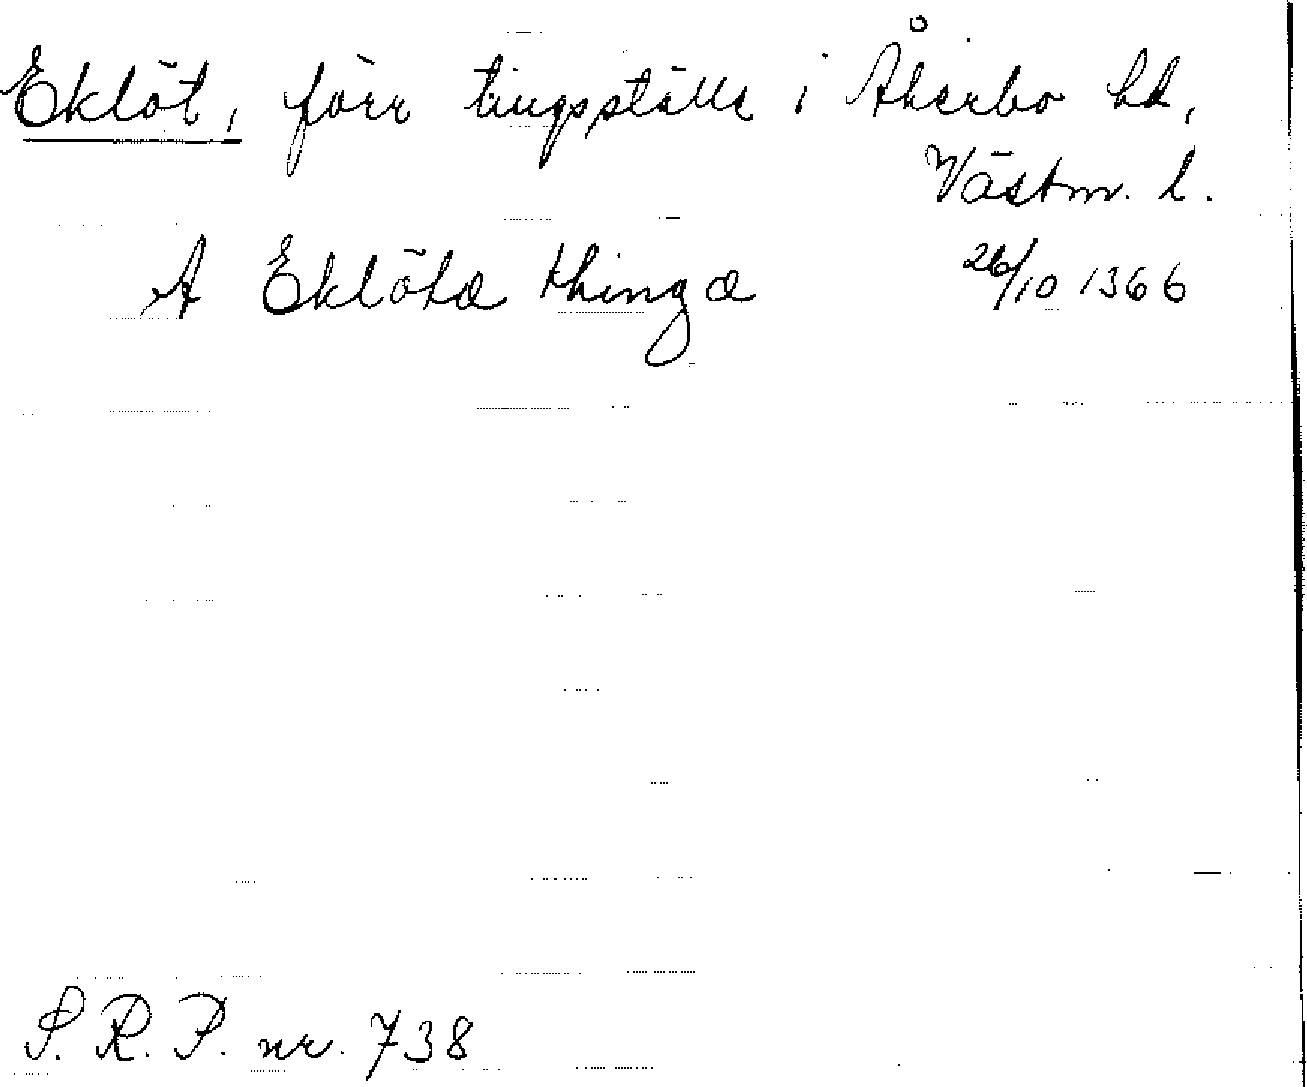 Eklöt, förr tingsställe i Åkerbo hd,
Västm. l.
A Eklöta thinga 26/10 1366
S. R. P. nr. 738